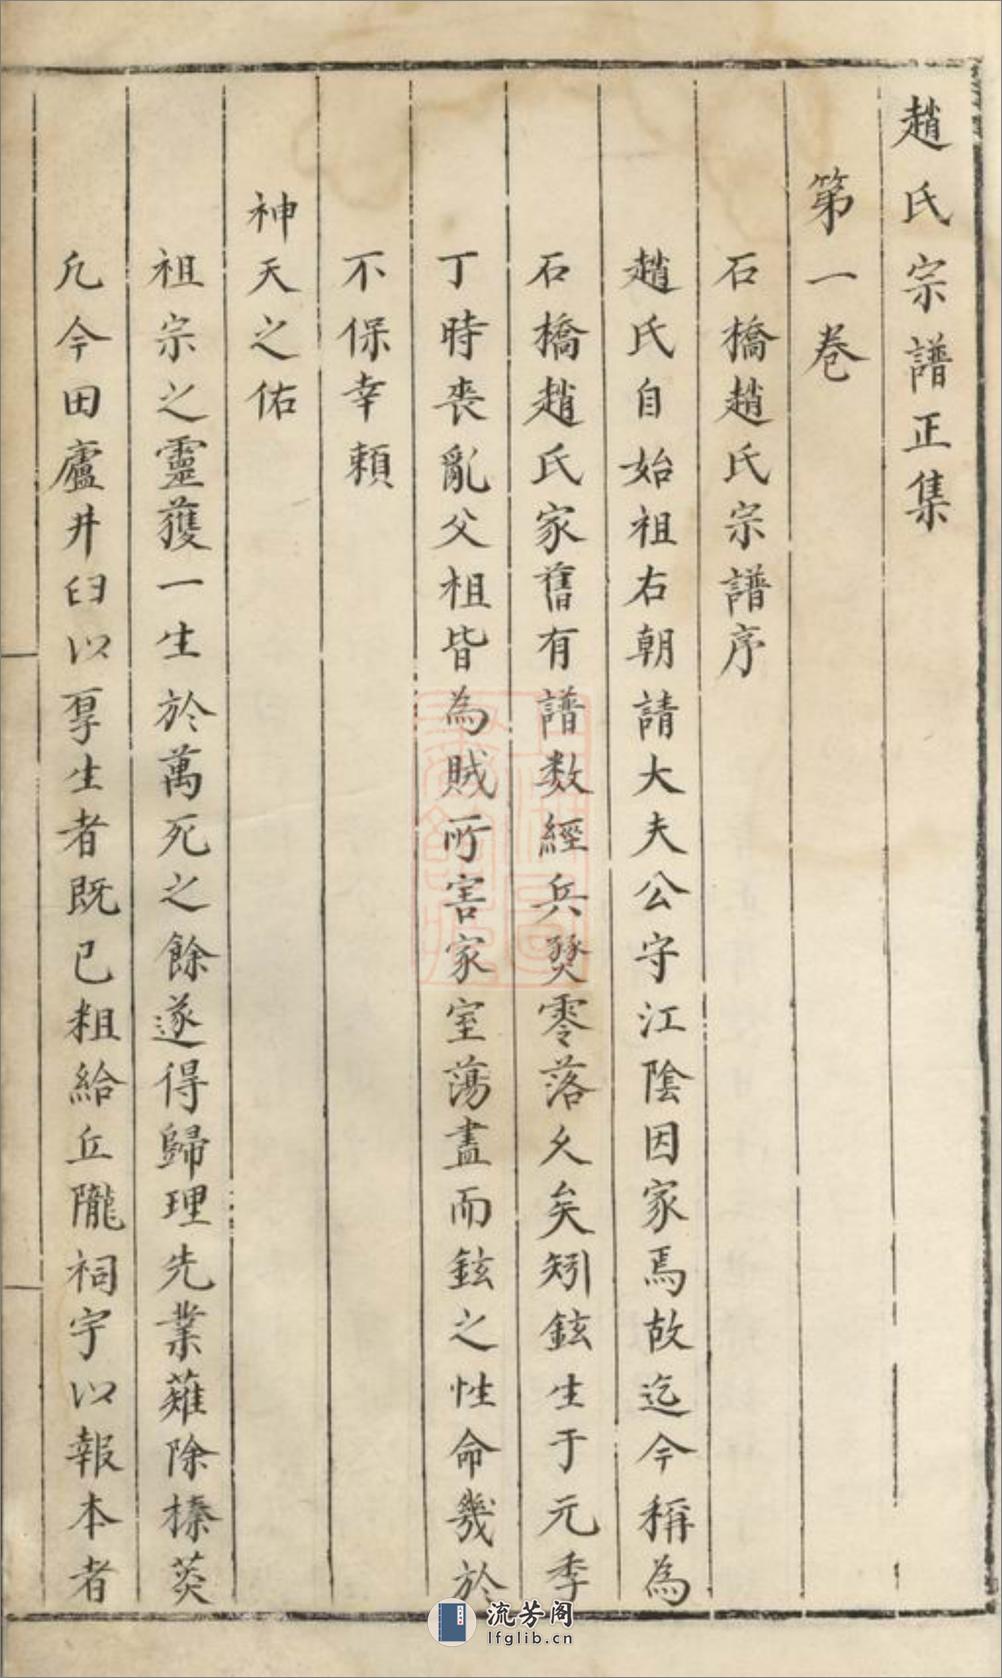 趙氏宗譜正集
第一卷
石橋趙氏宗譜序
趙氏自始祖右朝請大夫公守江陰因家焉故迄今稱為
石橋趙氏家舊有譜数經兵燹零落久矣矧鉉生于元季
丁時喪亂父祖皆為賊所害家室蕩盡而鉉之性命幾於
不保幸賴
神天之佑
祖宗之靈獲一生於萬死之餘遂得歸理先業薙除榛莽
凡今田廬井臼以厚生者既已粗給丘隴祠宇以報本者
流芳阁
lfglib.cn